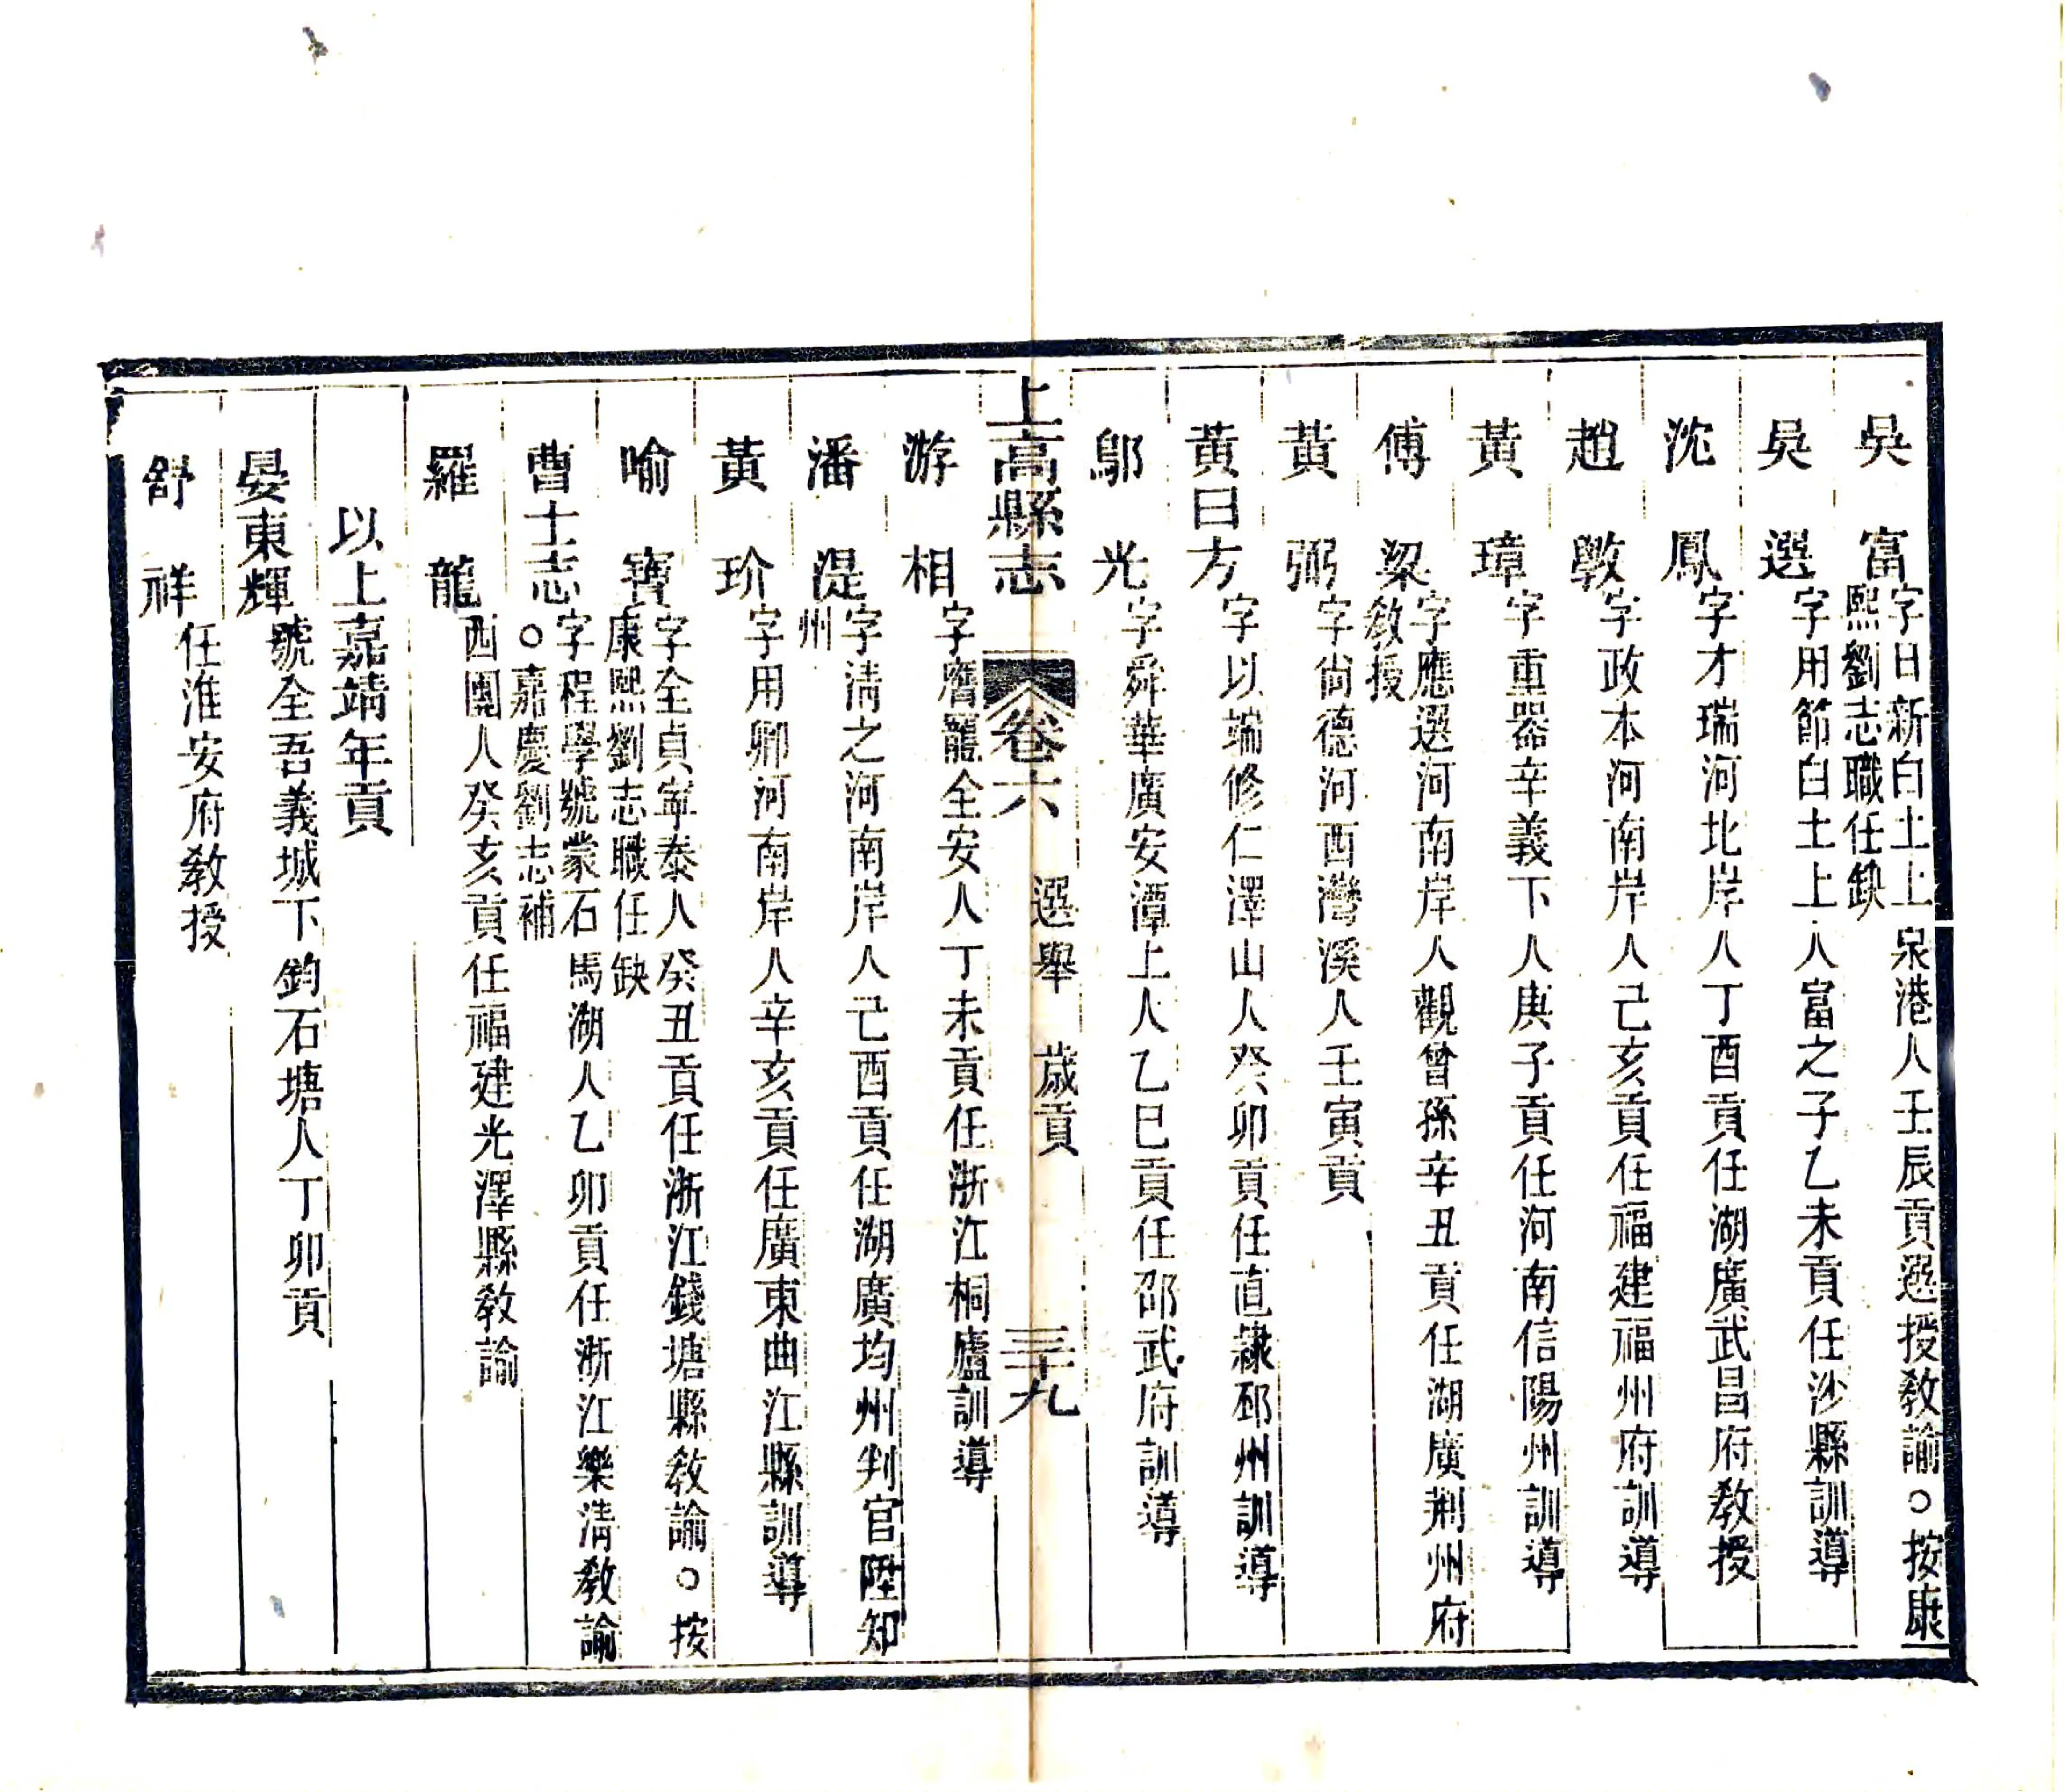 吳富字日新白土上泉港人壬辰貢選授敎諭○按康
熙劉志職任缺
吳選字用節白土上人富之子乙未貢任沙縣訓導
沈鳳字才瑞河北岸人丁酉貢任湖廣武昌府敎授
趙斆字政本河南岸人己亥貢任福建福州府訓導
黃璋字重器辛義下人庚子貢任河南信陽州訓導
傅梁字應選河南岸人觀曾孫辛丑貢任湖廣荆州府
敎授
黃弼字尙德河西灣溪人壬寅貢
黃日方字以端修仁澤山人癸卯貢任直隸邳州訓導
鄔光字舜華廣安潭上人乙巳貢任邵武府訓導
上高縣志 卷六 選舉 歲貢 三十九
游相字膺龍全安人丁未貢任浙江桐廬訓導
潘湜字淸之河南岸人己酉貢任湖廣均州判官陞知
州
黃玠字用卿河南岸人辛亥貢任廣東曲江縣訓導
喻寶字全貞寧泰人癸丑貢任浙江錢塘縣敎諭○按
康熙劉志職任缺
曹士志字程學號蒙石馬湖人乙卯貢任浙江樂淸敎諭
○嘉慶劉志補
羅龍西團人癸亥貢任福建光澤縣敎諭
以上嘉靖年貢
晏東輝號全吾義城下鈞石塘人丁卯貢
舒祥任淮安府敎授